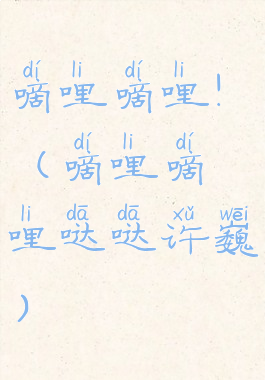 dí li dí li
嘀哩嘀哩!
dí li dí
(嘀哩嘀
li dā dā xǔ wēi
哩哒哒许巍
)